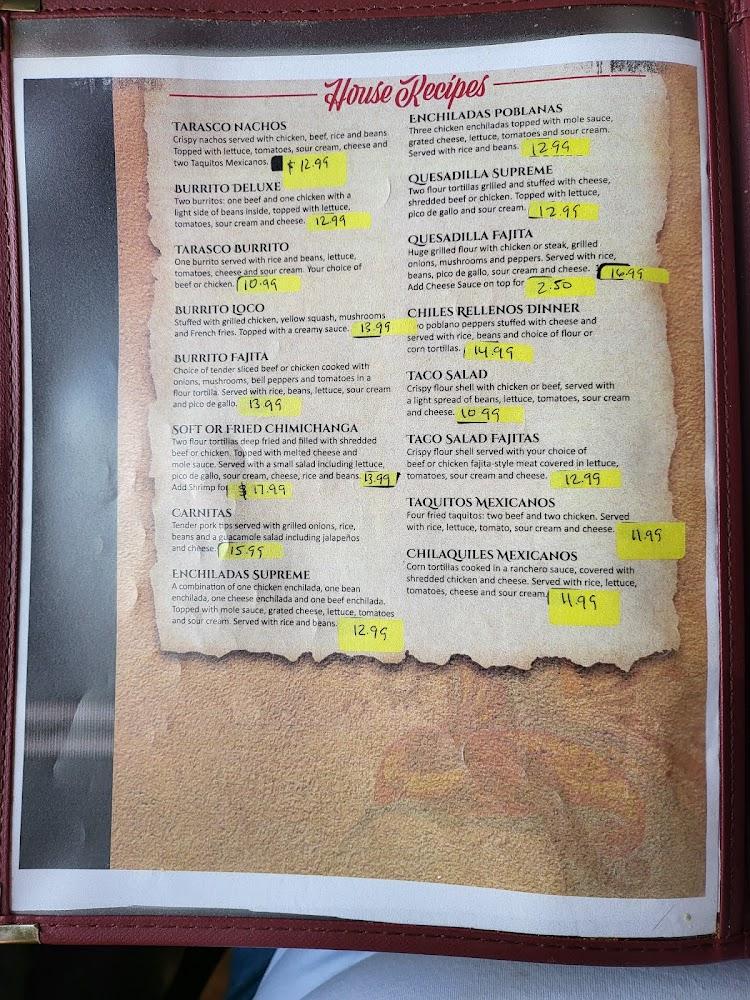 House Recipes
TARASCO NACHOS
Crispy nachos served with chicken, beef, rice and beans
Topped with lettuce, tomatoes, sour cream, cheese and
two Taquitos Mexicanos. $12.99
BURRITO DELUXE
Two burritos: one beef and one chicken with a
light side of beans inside, topped with lettuce,
tomatoes, sour cream and cheese. 12.99
TARASCO BURRITO
One burrito served with rice and beans, lettuce,
tomatoes, cheese and sour cream. Your choice of
beef or chicken. 10.99
BURRITO LOCO
Stuffed with grilled chicken, yellow squash, mushrooms
and French fries. Topped with a creamy sauce. 13.99
BURRITO FAJITA
Choice of tender sliced beef or chicken cooked with
onions, mushrooms, bell peppers and tomatoes in a
flour tortilla. Served with rice, beans, lettuce, sour cream
and pico de gallo. 13.99
SOFT OR FRIED CHIMICHANGA
Two flour tortillas deep fried and filled with shredded
beef or chicken. Topped with melted cheese and
mole sauce. Served with a small salad including lettuce,
pico de gallo, sour cream, cheese, rice and beans. 13.99
Add Shrimp for $17.99
CARNITAS
Tender pork tips served with grilled onions, rice,
beans and a guacamole salad including jalapeños
and cheese. 15.99
ENCHILADAS SUPREME
A combination of one chicken enchilada, one bean
enchilada, one cheese enchilada and one beef enchilada.
Topped with mole sauce, grated cheese, lettuce, tomatoes
and sour cream. Served with rice and beans. 12.99
ENCHILADAS POBLANAS
Three chicken enchiladas topped with mole sauce,
grated cheese, lettuce, tomatoes and sour cream.
Served with rice and beans. 12.99
QUESADILLA SUPREME
Two flour tortillas grilled and stuffed with cheese,
shredded beef or chicken. Topped with lettuce,
pico de gallo and sour cream. 12.99
QUESADILLA FAJITA
Huge grilled flour with chicken or steak, grilled
onions, mushrooms and peppers. Served with rice,
beans, pico de gallo, sour cream and cheese. 16.99
Add Cheese Sauce on top for 2.50
CHILES RELLENOS DINNER
poblano peppers stuffed with cheese and
served with rice, beans and choice of flour or
corn tortillas. 14.99
TACO SALAD
Crispy flour shell with chicken or beef, served with
a light spread of beans, lettuce, tomatoes, sour cream
and cheese. 10.99
TACO SALAD FAJITAS
Crispy flour shell served with your choice of
beef or chicken fajita-style meat covered in lettuce,
tomatoes, sour cream and cheese. 12.99
TAQUITOS MEXICANOS
Four fried taquitos: two beef and two chicken. Served
with rice, lettuce, tomato, sour cream and cheese. 11.99
CHILAQUILES MEXICANOS
Corn tortillas cooked in a ranchero sauce, covered with
shredded chicken and cheese. Served with rice, lettuce,
tomatoes, cheese and sour cream. 11.99